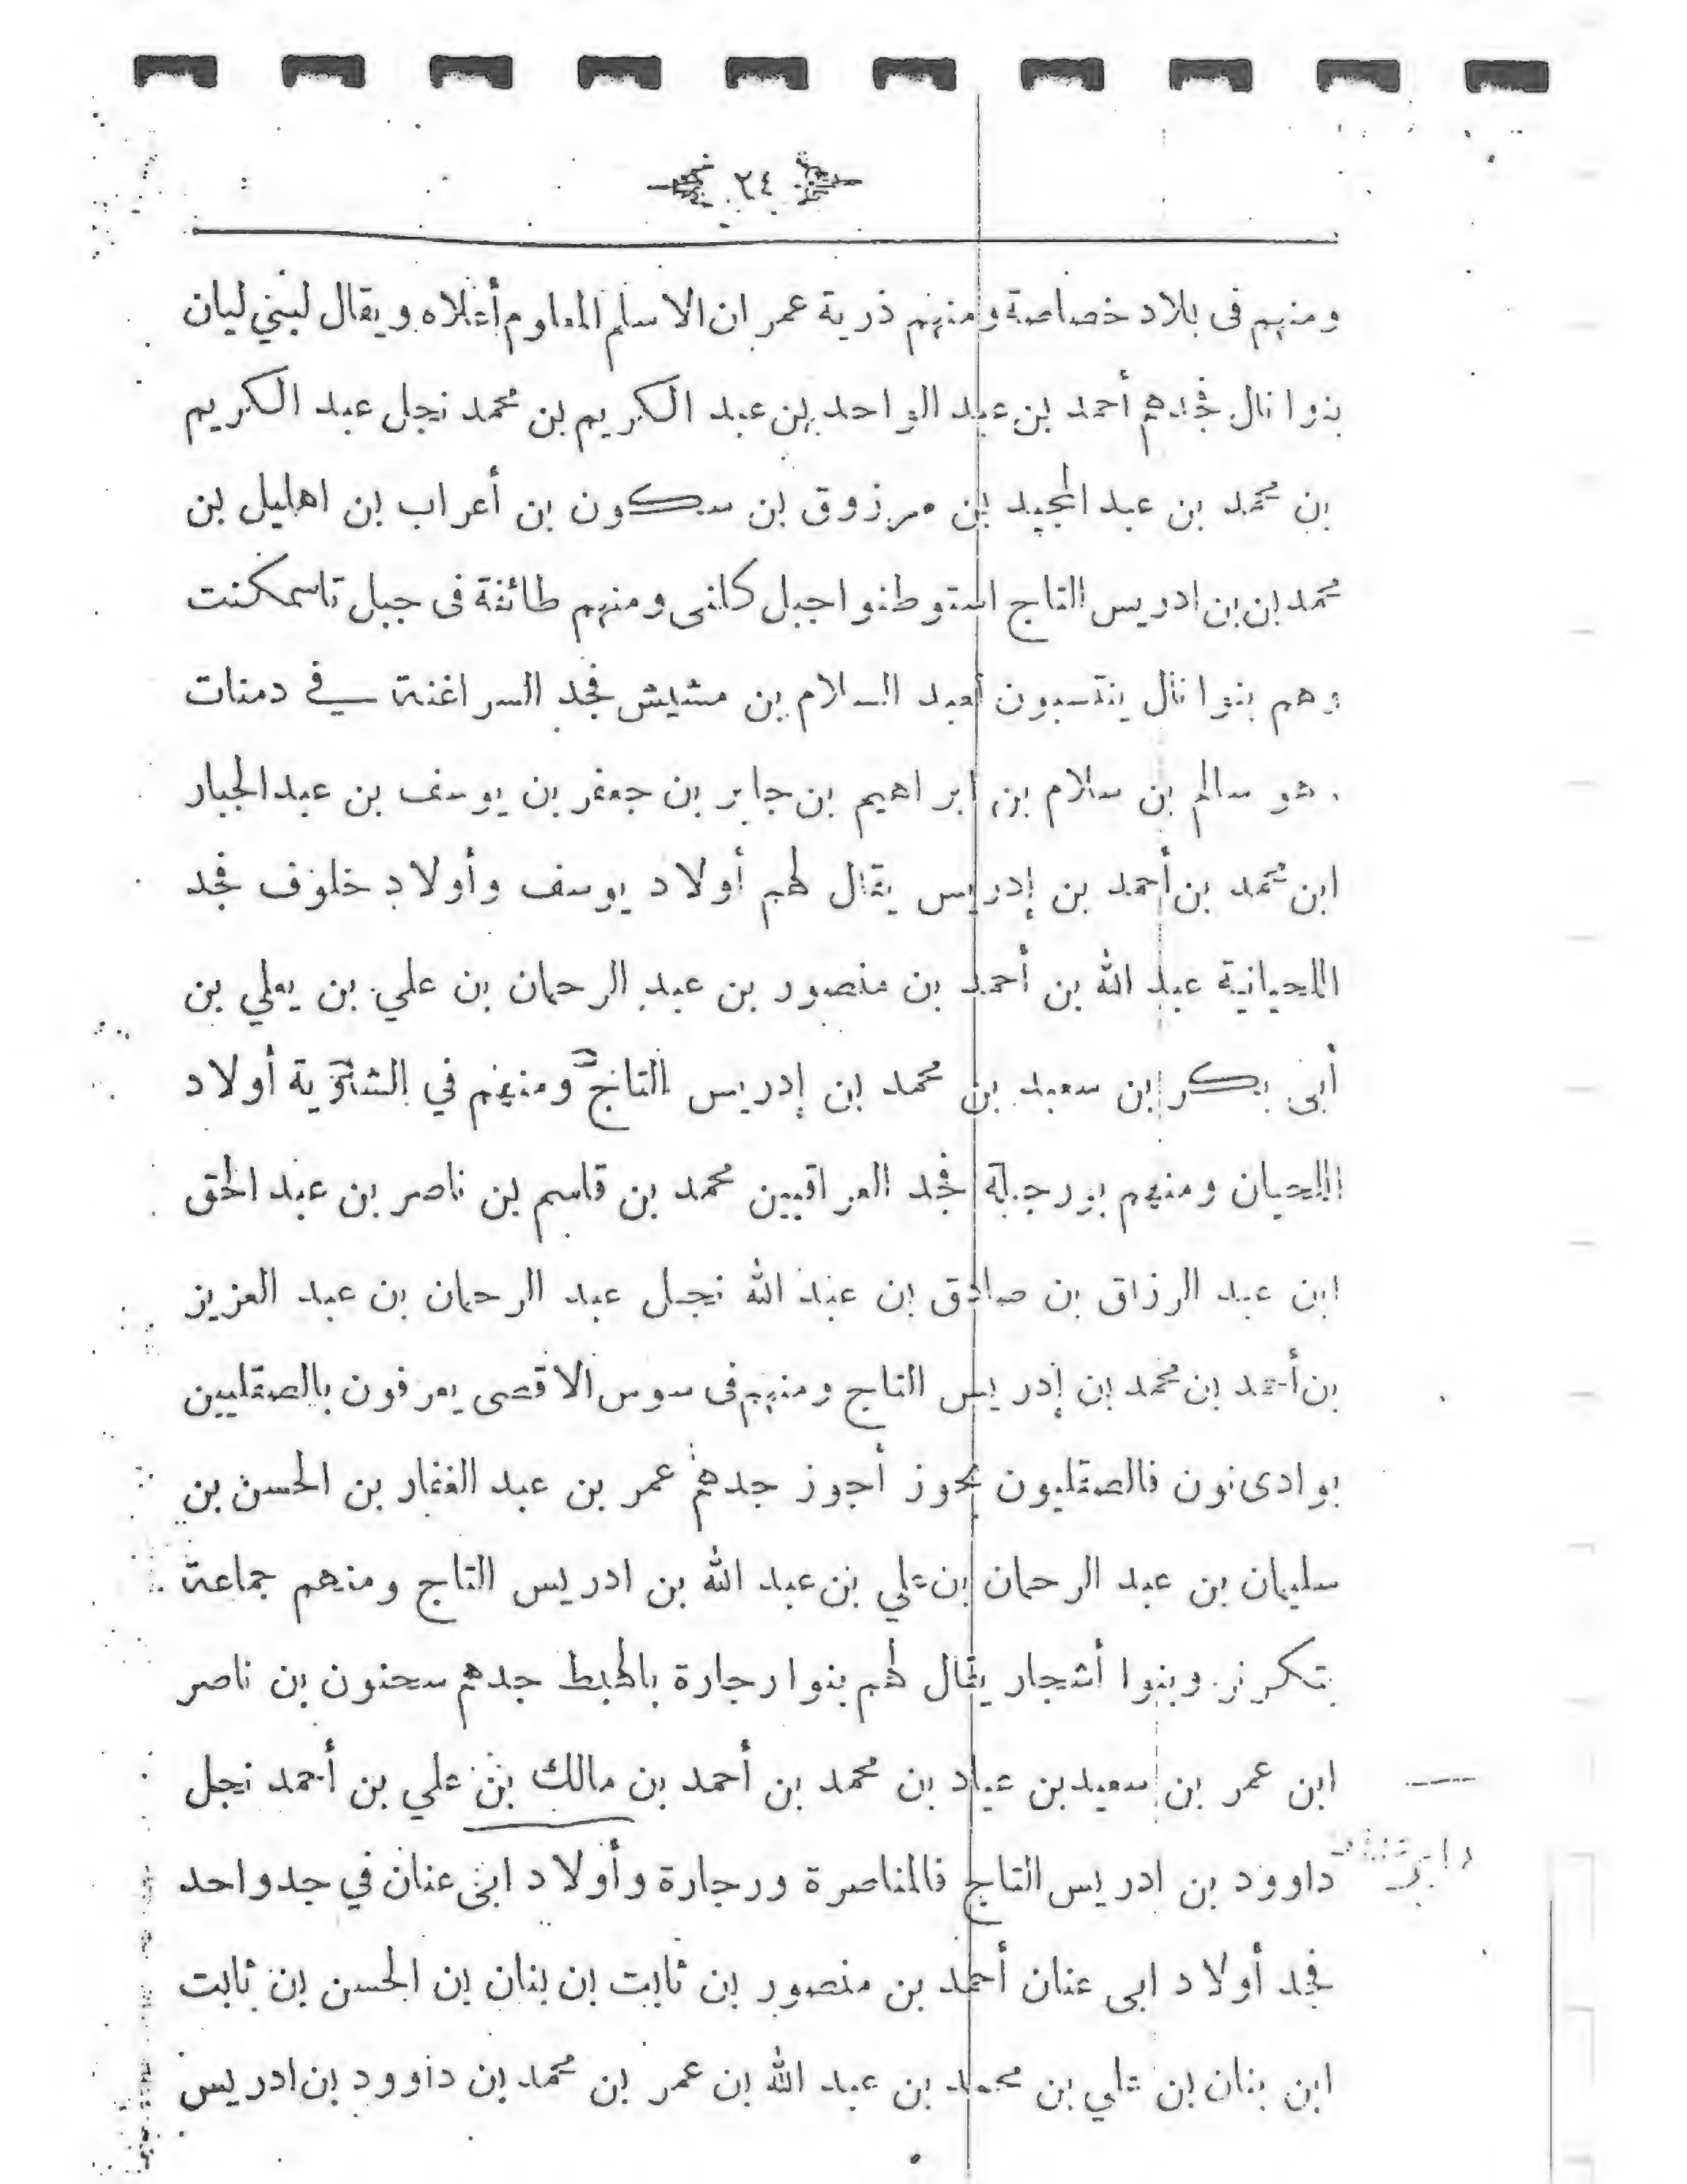 ٢٤
ومنهم فى بلاد خصاصة ومنهم ذرية عمران الاسلم المعلوم أعلاه ويقال لبني ليان
بنوا نال فجدهم أحمد بن عبد الواحد بن عبد الكريم بن محمد نجل عبد الكريم
بن محمد بن عبد المجيد بن مرزوق بن سكون بن أعراب بن اهليل بن
محمد بن بن ادريس التاج استوطنوا جبل كلنى ومنهم طائفة فى جبل تاسمكنت
وهم بنوا نال ينتسبون لعبد السلام بن مشيش فجد السراغنة في دمنات
هو سالم بن سلام بن ابراهيم بن جابر بن جعفر بن يوسف بن عبد الجبار
ابن محمد بن أحمد بن إدريس يقال لهم أولاد يوسف وأولاد خلوف فجد
اللحيانية عبد الله بن أحمد بن منصور بن عبد الرحمان بن علي بن يعلي بن
أبى بكر بن سعيد بن محمد بن إدريس التاج ومنهم في أولاد
اللحيان ومنهم بورجبة فجد العراقيين محمد بن قاسم بن ناصر بن عبد الحق
ابن عبد الرزاق بن صادق بن عبد الله نجل عبد الرحمان بن عبد العزيز
بن أحمد بن محمد بن إدريس التاج ومنهم فى سوس الاقصى يعرفون بالصقليين
بوادى نون فالصقليون بحوز أجوز جدهم عمر بن عبد الغفار بن الحسن بن
سليمان بن عبد الرحمان بن علي بن عبد الله بن ادريس التاج ومنهم جماعة
بتكرنز وبنوا أشجار يقال لهم بنوا رجارة بالهبط جدهم سحنون بن ناصر
ابن عمر بن سعيد بن عياد بن محمد بن أحمد بن مالك بن علي بن أحمد نجل
داوود بن ادريس التاج فالمناصرة ورجارة وأولاد ابى عنان في جد واحد
فجد أولاد ابى عنان أحمد بن منصور بن ثابت بن بنان بن الحسن بن ثابت
ابن بنان بن علي بن محمد بن عبد الله بن عمر بن محمد بن داوود بن ادريس